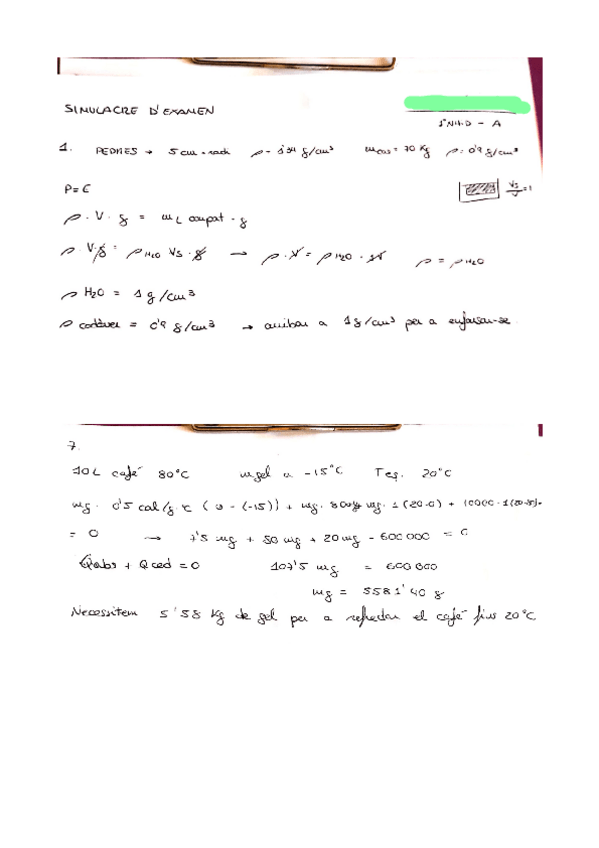 SIMULACRE D'EXAMEN
1. PEDRES → 5 cm radi ρ = 1'34 g/cm³ = 70 Kg ρ = 0'9 g/cm³
P = E
Vs/V = 1
ρ · V · g = mL · g
ρ · V · g = ρ H2O Vs · g → ρ · V = ρ H2O · V ρ = ρ H2O
ρ H2O = 1 g/cm³
ρ cadàver = 0'9 g/cm³ → arribar a 1 g/cm³ per a enfonsar-se.
7.
10 L café 80°C mgel a -15°C Teq. 20°C
mg · 0'5 cal/g °C (0 - (-15)) + mg · 80 + mg · 1 (20-0) +
= 0 → 7'5 mg + 80 mg + 20 mg - 600 000 = 0
Qabs + Qced = 0 107'5 mg = 600 000
mg = 5581'40 g
Necessitem 5'58 Kg de gel per a refredar el café fins 20°C